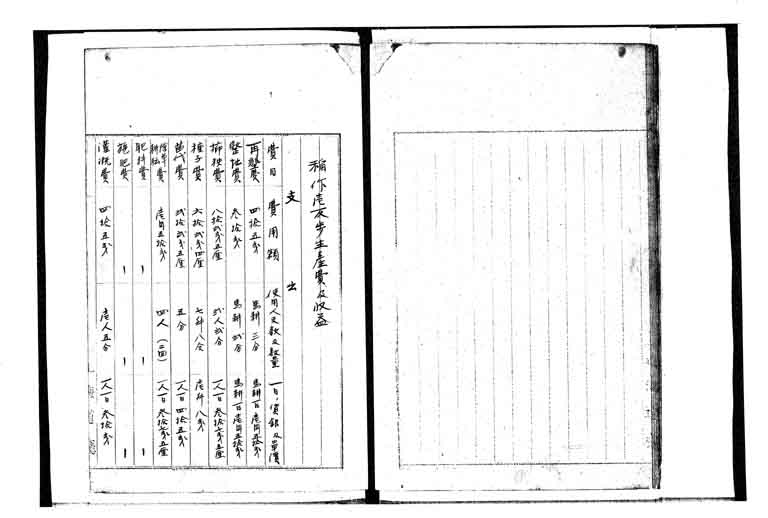 稲作壱反歩生産費及収益
支出
費目 費用額 使用人夫数及数量 一日ノ賃銀及単價
再墾費 四拾五銭 馬耕 三分 馬耕一日壱円五拾銭
整地費 参拾銭 馬耕 弐分 馬耕一日壱円五拾銭
挿秧費 八拾弐銭五厘 弐人弐分 一人一日 参拾七銭五厘
種子費 六拾弐銭四厘 七升八合 壱升 八銭
苗代費 弐拾弐銭五厘 五分 一人一日 四拾五銭
除草耕耘費 壱円五拾銭 四人(二回) 一人一日 参拾七銭五厘
肥料費 ー ー ー
施肥費 ー ー ー
灌漑費 四拾五銭 壱人五分 一人一日 参拾銭